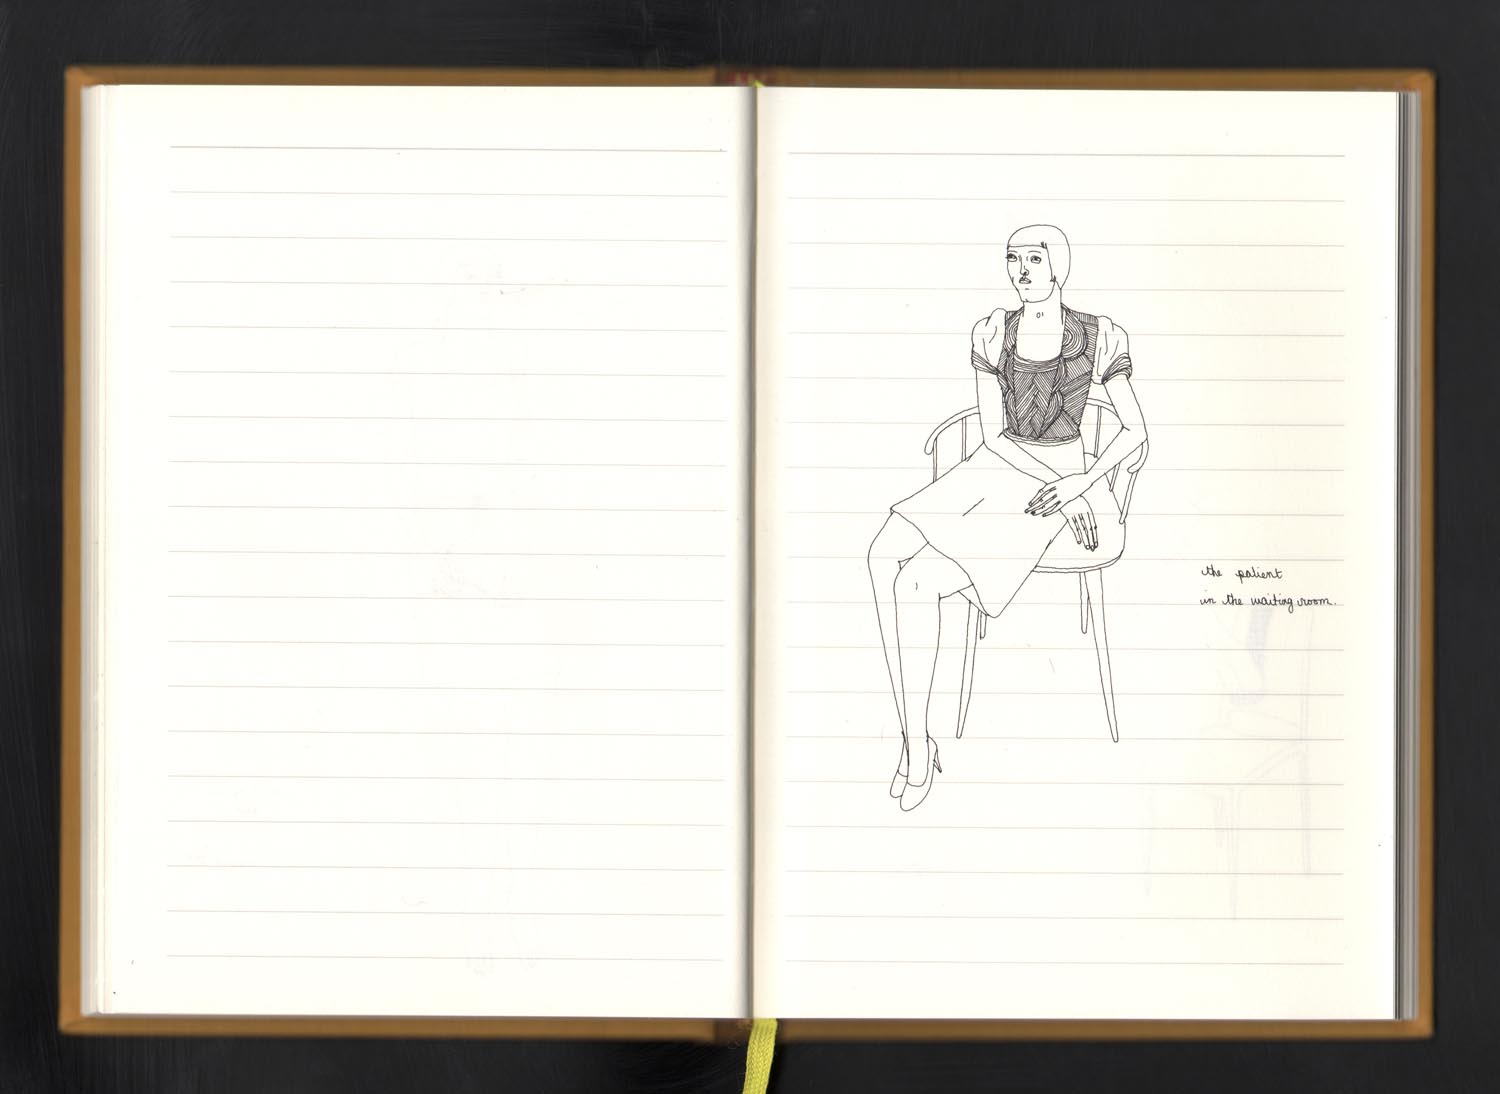 the patient
in the waiting room.